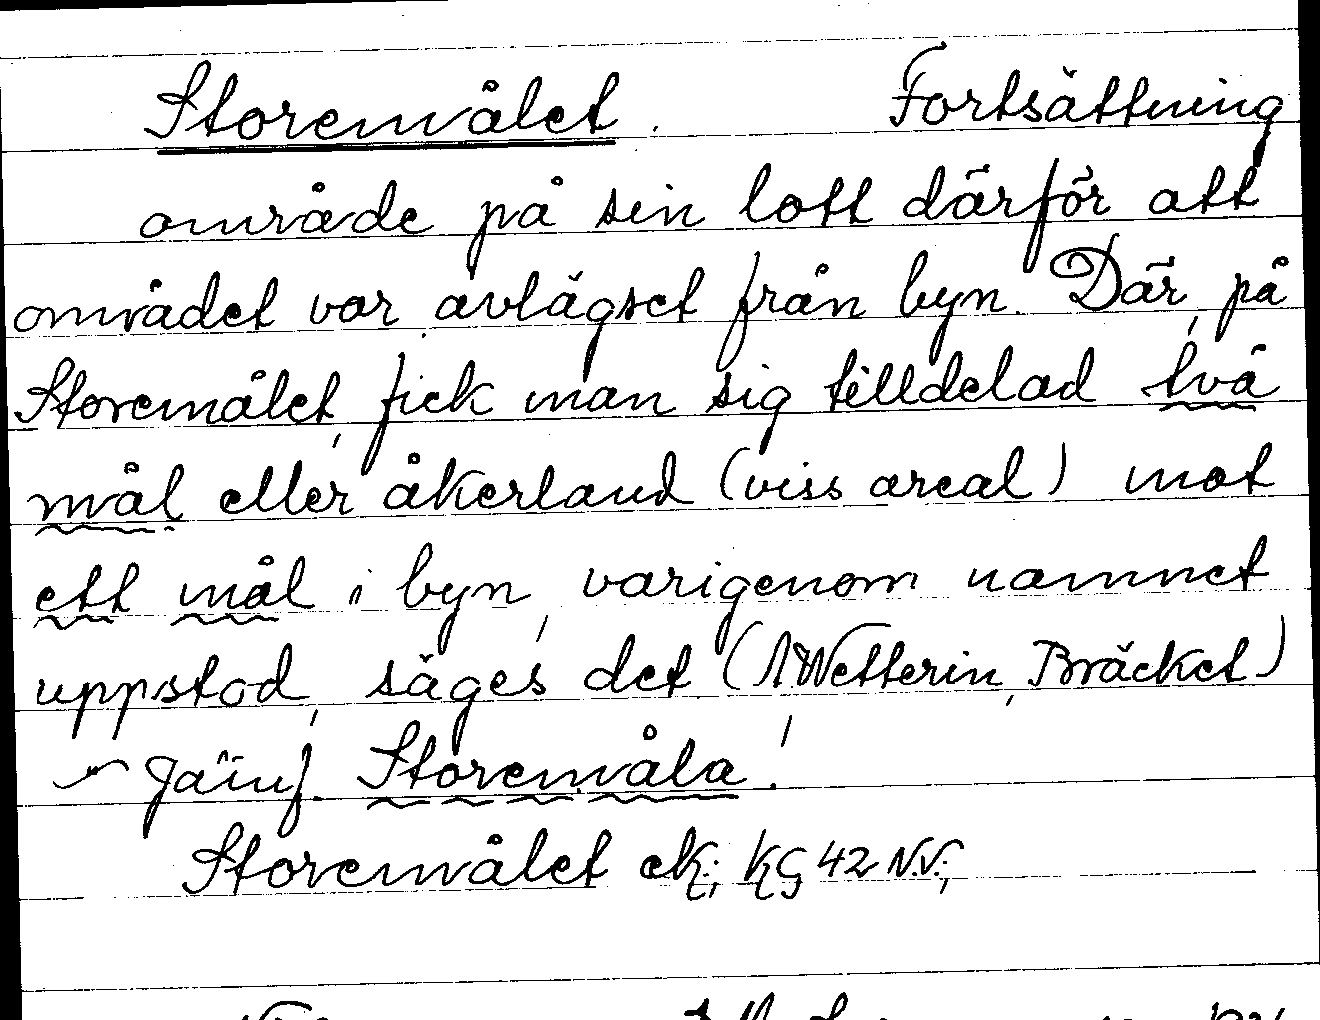 Storemålet. Fortsättning
område på sin lott därför att
området var avlägset från byn. Där, på
Storemålet, fick man sig tilldelad två
mål eller åkerland (viss areal) mot
ett mål i byn, varigenom namnet
uppstod, säges det (A Wetterin, Bräcket)
Jämf. Storemåla!
Storemålet ek; KG 42 N.V.;